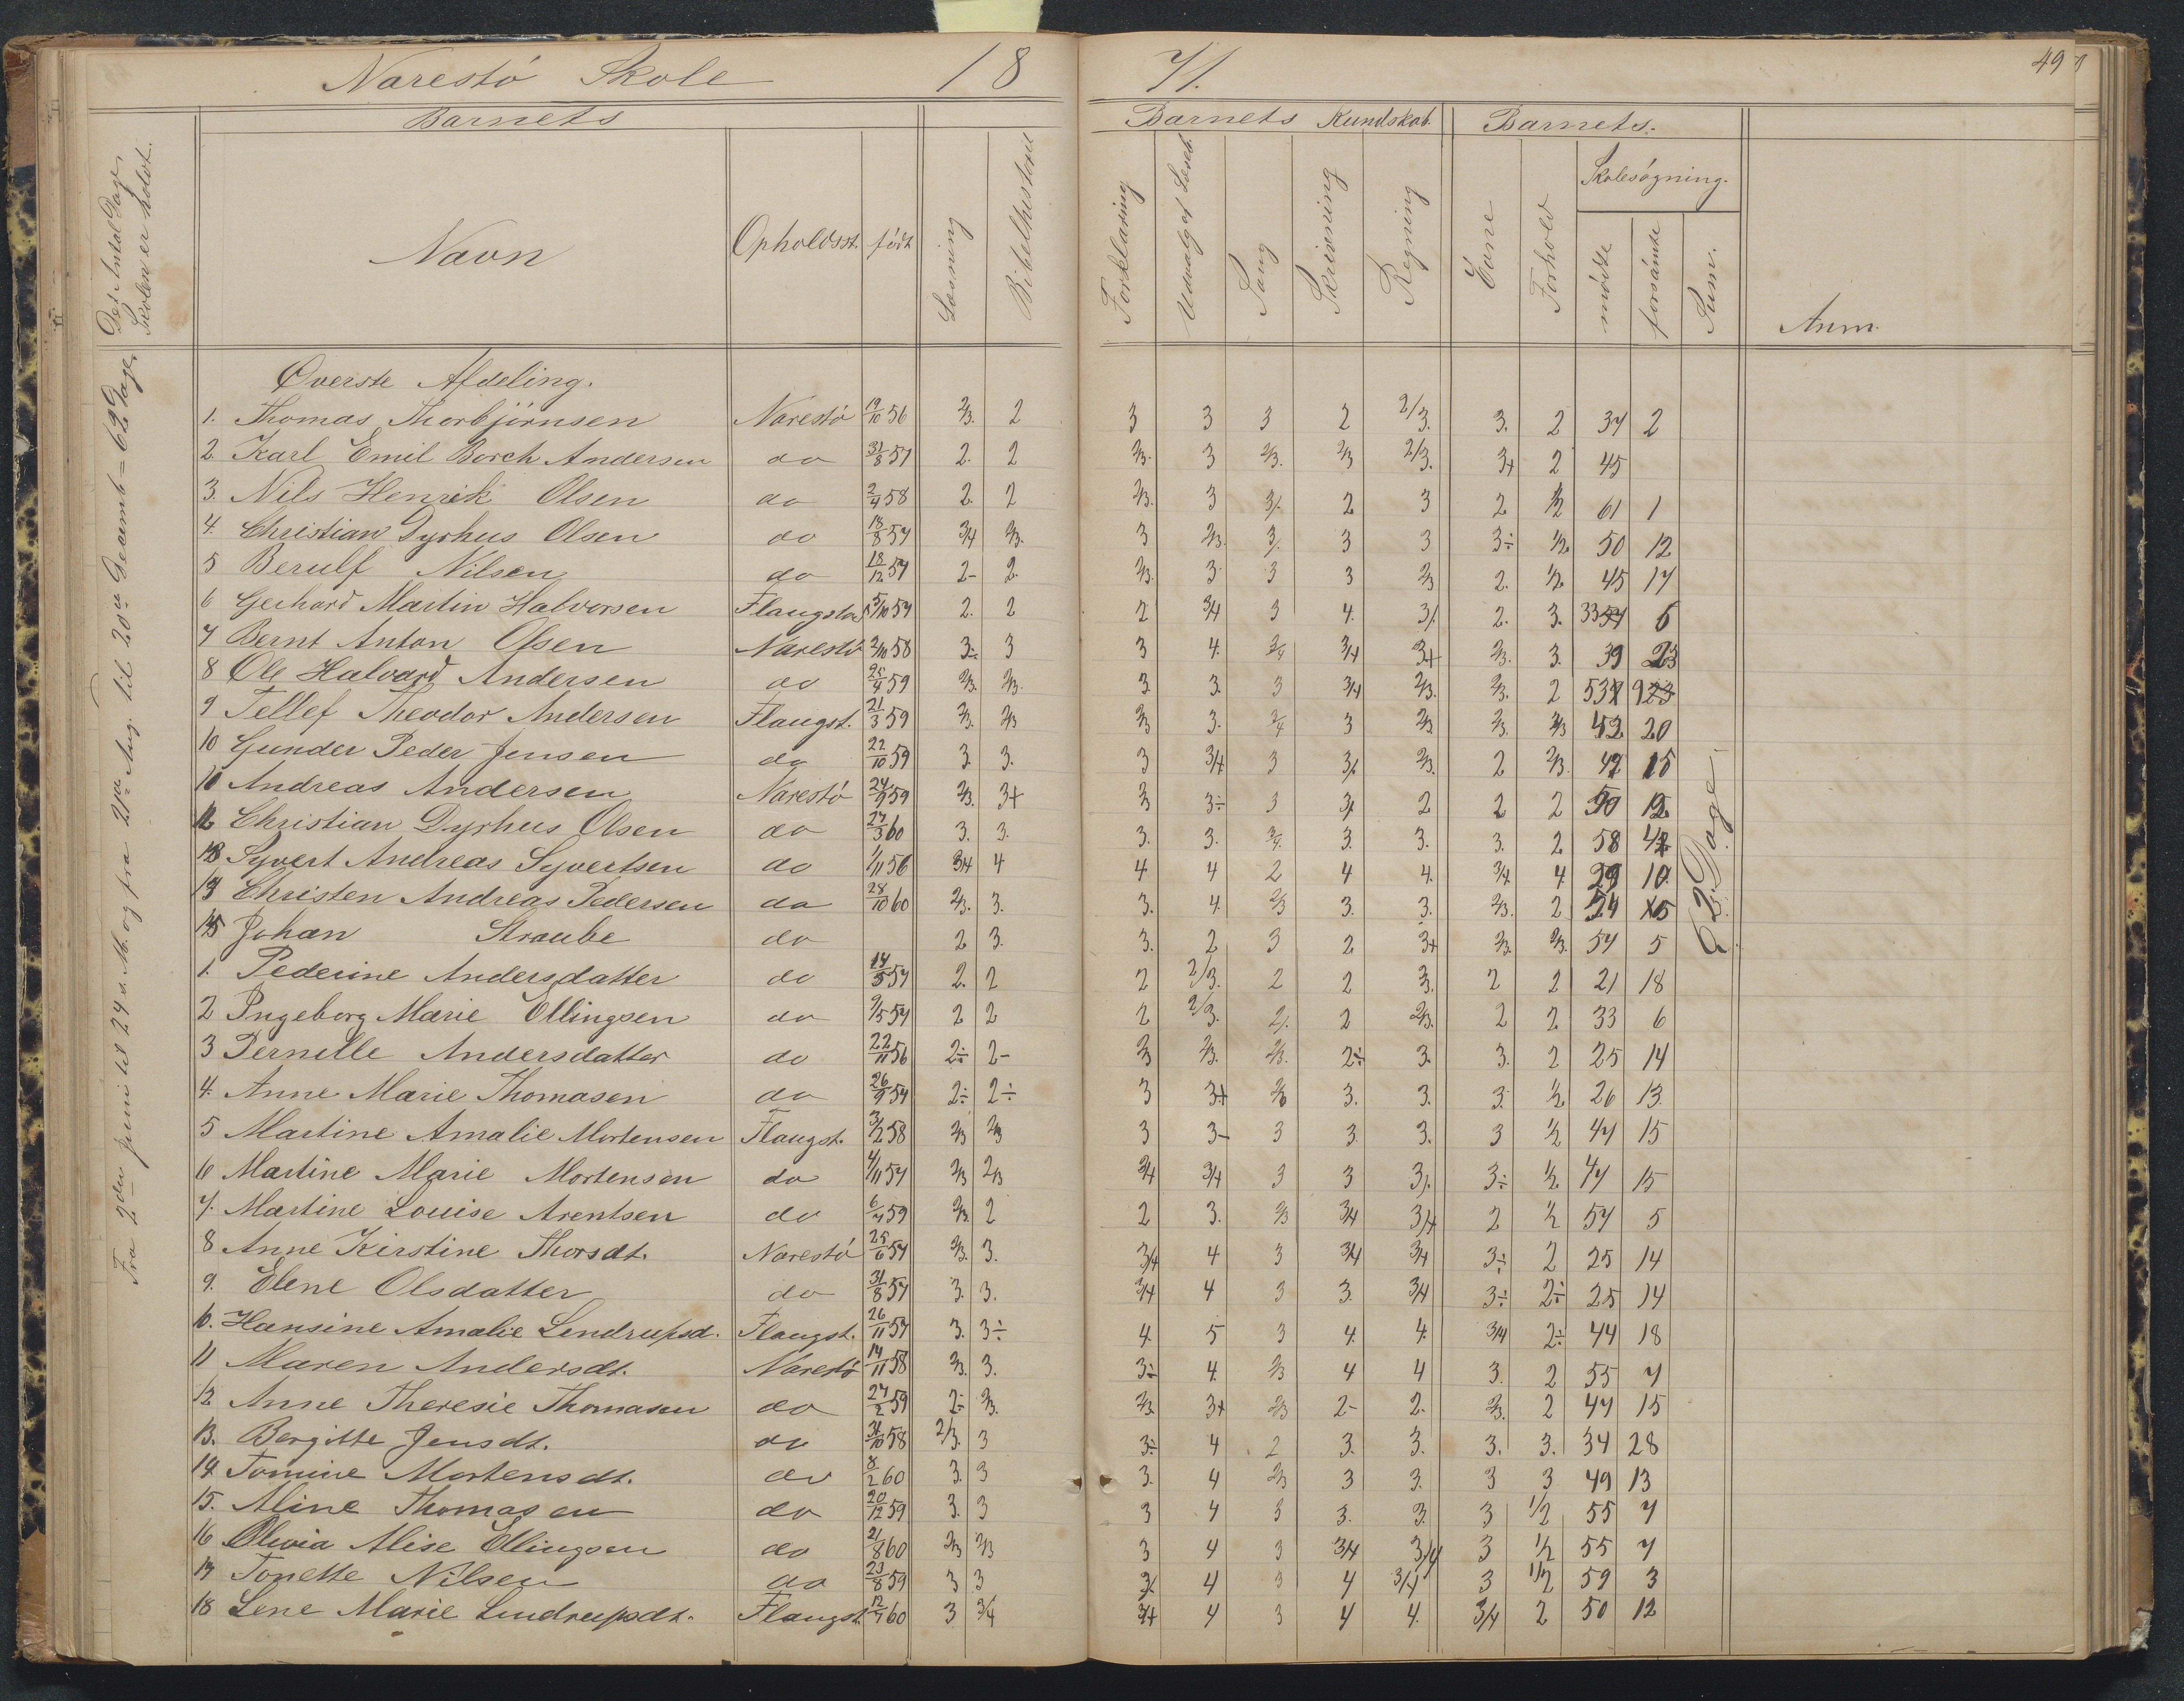 Narestö Skole 1871.
49
Barnets
Barnets Kundskab.
Barnets.
Det Antal Dage Skolen er holdt.
Navn
Opholdsst.
födt
Læsning
Bibelhistorie
Forklaring
Udvalg af Læseb.
Sang
Skrivning
Regning
Evne
Forhold
Skolesögning.
mödte
forsömte
Sum.
Anm.
Fra 2den Juni til 24 s. M. og fra 21de Aug. til 20de Decemb = 62 Dage.
Överste Afdeling.
1. Thomas Thorbjörnsen Narestö 19/10 56 2/3. 2 3 3 3 2 2/3. 3. 2 37 2
2. Karl Emil Borch Andersen do 31/8 57 2. 2 2/3. 3 2/3. 2/3 2/3. 3+ 2 45
3. Nils Henrik Olsen do 2/4 58 2. 2 2/3. 3 3/. 2 3 2 1/2 61 1
4. Christian Dyrhus Olsen do 18/8 57 3/4 2/3. 3 2/3. 3/. 3 3 3÷ 1/2 50 12
5 Berulf Nilsen do 18/12 57 2- 2. 2/3. 3. 3 3 2/3 2. 1/2 45 17
6 Gerhard Martin Halvorsen Flaugstad 5/10 57 2. 2 2 3/4 3 4. 3/. 2. 3. 33 6
7 Bernt Anton Olsen Narestö 2/10 58 3÷ 3 3 4. 3/4 3/4 3+ 2/3. 3. 39 23
8 Ole Halvard Andersen do 25/4 59 2/3. 2/3. 3. 3. 3 3/4 2/3. 2/3. 2 53 9
9 Tellef Theodor Andersen Flaugst. 21/3 59 2/3. 2/3 2/3 3. 3/4 3 2/3 2/3. 2/3 42 20
10 Gunder Peder Jensen do 22/10 59 3. 3. 3 3/4 3 3/. 2/3. 2 2/3. 47 15
11 Andreas Andersen Narestö 24/9 59 2/3. 3+ 2/3 3÷ 3 3/. 2 2 2 50 12
12 Christian Dyrhus Olsen do 27/3 60 3. 3. 3. 3. 3/4. 3. 3. 3. 2 58 4
13 Syvert Andreas Syvertsen do 1/11 56 3/4 4 4 4 2 4 4. 3/4 4 29 10
14 Christen Andreas Pedersen do 28/10 60 2/3. 3. 3. 4. 2/3 3. 3. 2/3. 2 24 15
15 Johan Straube do 2 3. 3. 2 3 2 3+ 2/3. 2/3. 57 5
62 Dage
1. Pederine Andersdatter do 14/5 57 2. 2 2 2/3. 2 2 3. 2 2 21 18
2 Ingeborg Marie Ellingsen do 9/5 57 2 2 2 2/3. 2/. 2 2/3. 2 2 33 6
3 Pernelle Andersdatter do 22/11 56 2÷ 2- 2/3 2/3. 2/3. 2÷ 3. 3. 2 25 14
4. Anne Marie Thomasen do 26/9 57 2÷ 2÷ 3 3+ 2/3 3. 3. 3. 1/2 26 13
5 Martine Amalie Mortensen Flaugst. 3/2 58 2/3 2/3 3 3- 3 3. 3. 3 1/2 47 15
6 Martine Marie Mortensen do 4/11 57 2/3 2/3 3/4 3/4 3 3 3/. 3÷ 1/2 47 15
7. Martine Louise Arentsen do 6/4 59 2/3. 2 2 3. 2/3 3/4 3/4 2 1/2 57 5
8 Anne Kirstine Thorsdt. Narestö 25/6 57 2/3. 3. 3/4 4 3 3/4 3/4 3÷ 2 25 14
9. Elene Olsdatter do 31/8 57 3. 3. 3/4 4 3 3. 3/4 3÷ 2÷ 25 14
10. Hansine Amalie Lendrupsd. Flaugst. 26/11 57 3. 3÷ 4. 5 3 4. 4. 3/4 2÷ 44 18
11 Maren Andersdt. Narestö 14/11 58 2/3. 3. 3÷ 4. 2/3 4 4 3. 2 55 7
12 Anne Theresie Thomasen do 27/2 59 2÷ 2/3. 2/3. 3+ 2/3 2- 2. 2/3. 2 47 15
13. Bergitte Jensdt. do 31/10 58 2/3. 3 3÷ 4 2 3. 3. 3. 3. 34 28
14 Tomine Mortensdt. do 8/2 60 3. 3 3. 4 2/3 3 3. 3 3 49 13
15. Aline Thomasen do 20/12 59 3. 3 3 4 3 3. 3. 3 1/2 55 7
16 Olivia Alise Ellingsen do 21/8 60 2/3 2/3 3 4 3 3/4 3/4 3 1/2 55 7
17 Tonette Nilsen do 23/8 59 3 3 3/. 4 3 4 3/4 3 1/2 59 3
18 Lene Marie Lindrupsdt. Flaugst. 12/7 60 3 3/4 3/4 4 3 4 4. 3/4 2 50 12